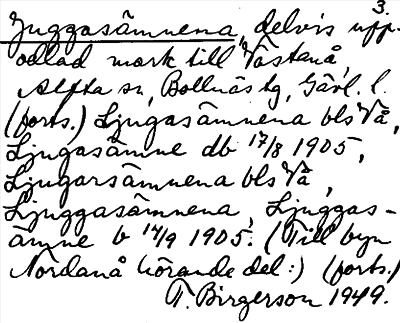 3.
Juggasämnena, delvis upp-
odlad mark till Västanå,
Alfta sn, Bollnäs tg, Gävl. l.
(forts.) Ljugasämnena bls Vå,
Ljugasämne db 17/8 1905,
Ljugarsämnena bls Vå,
Ljuggasämnena, Ljuggas-
ämne b 14/9 1905. (Till byn
Nordanå hörande del:) (forts.)
T. Birgerson 1949.